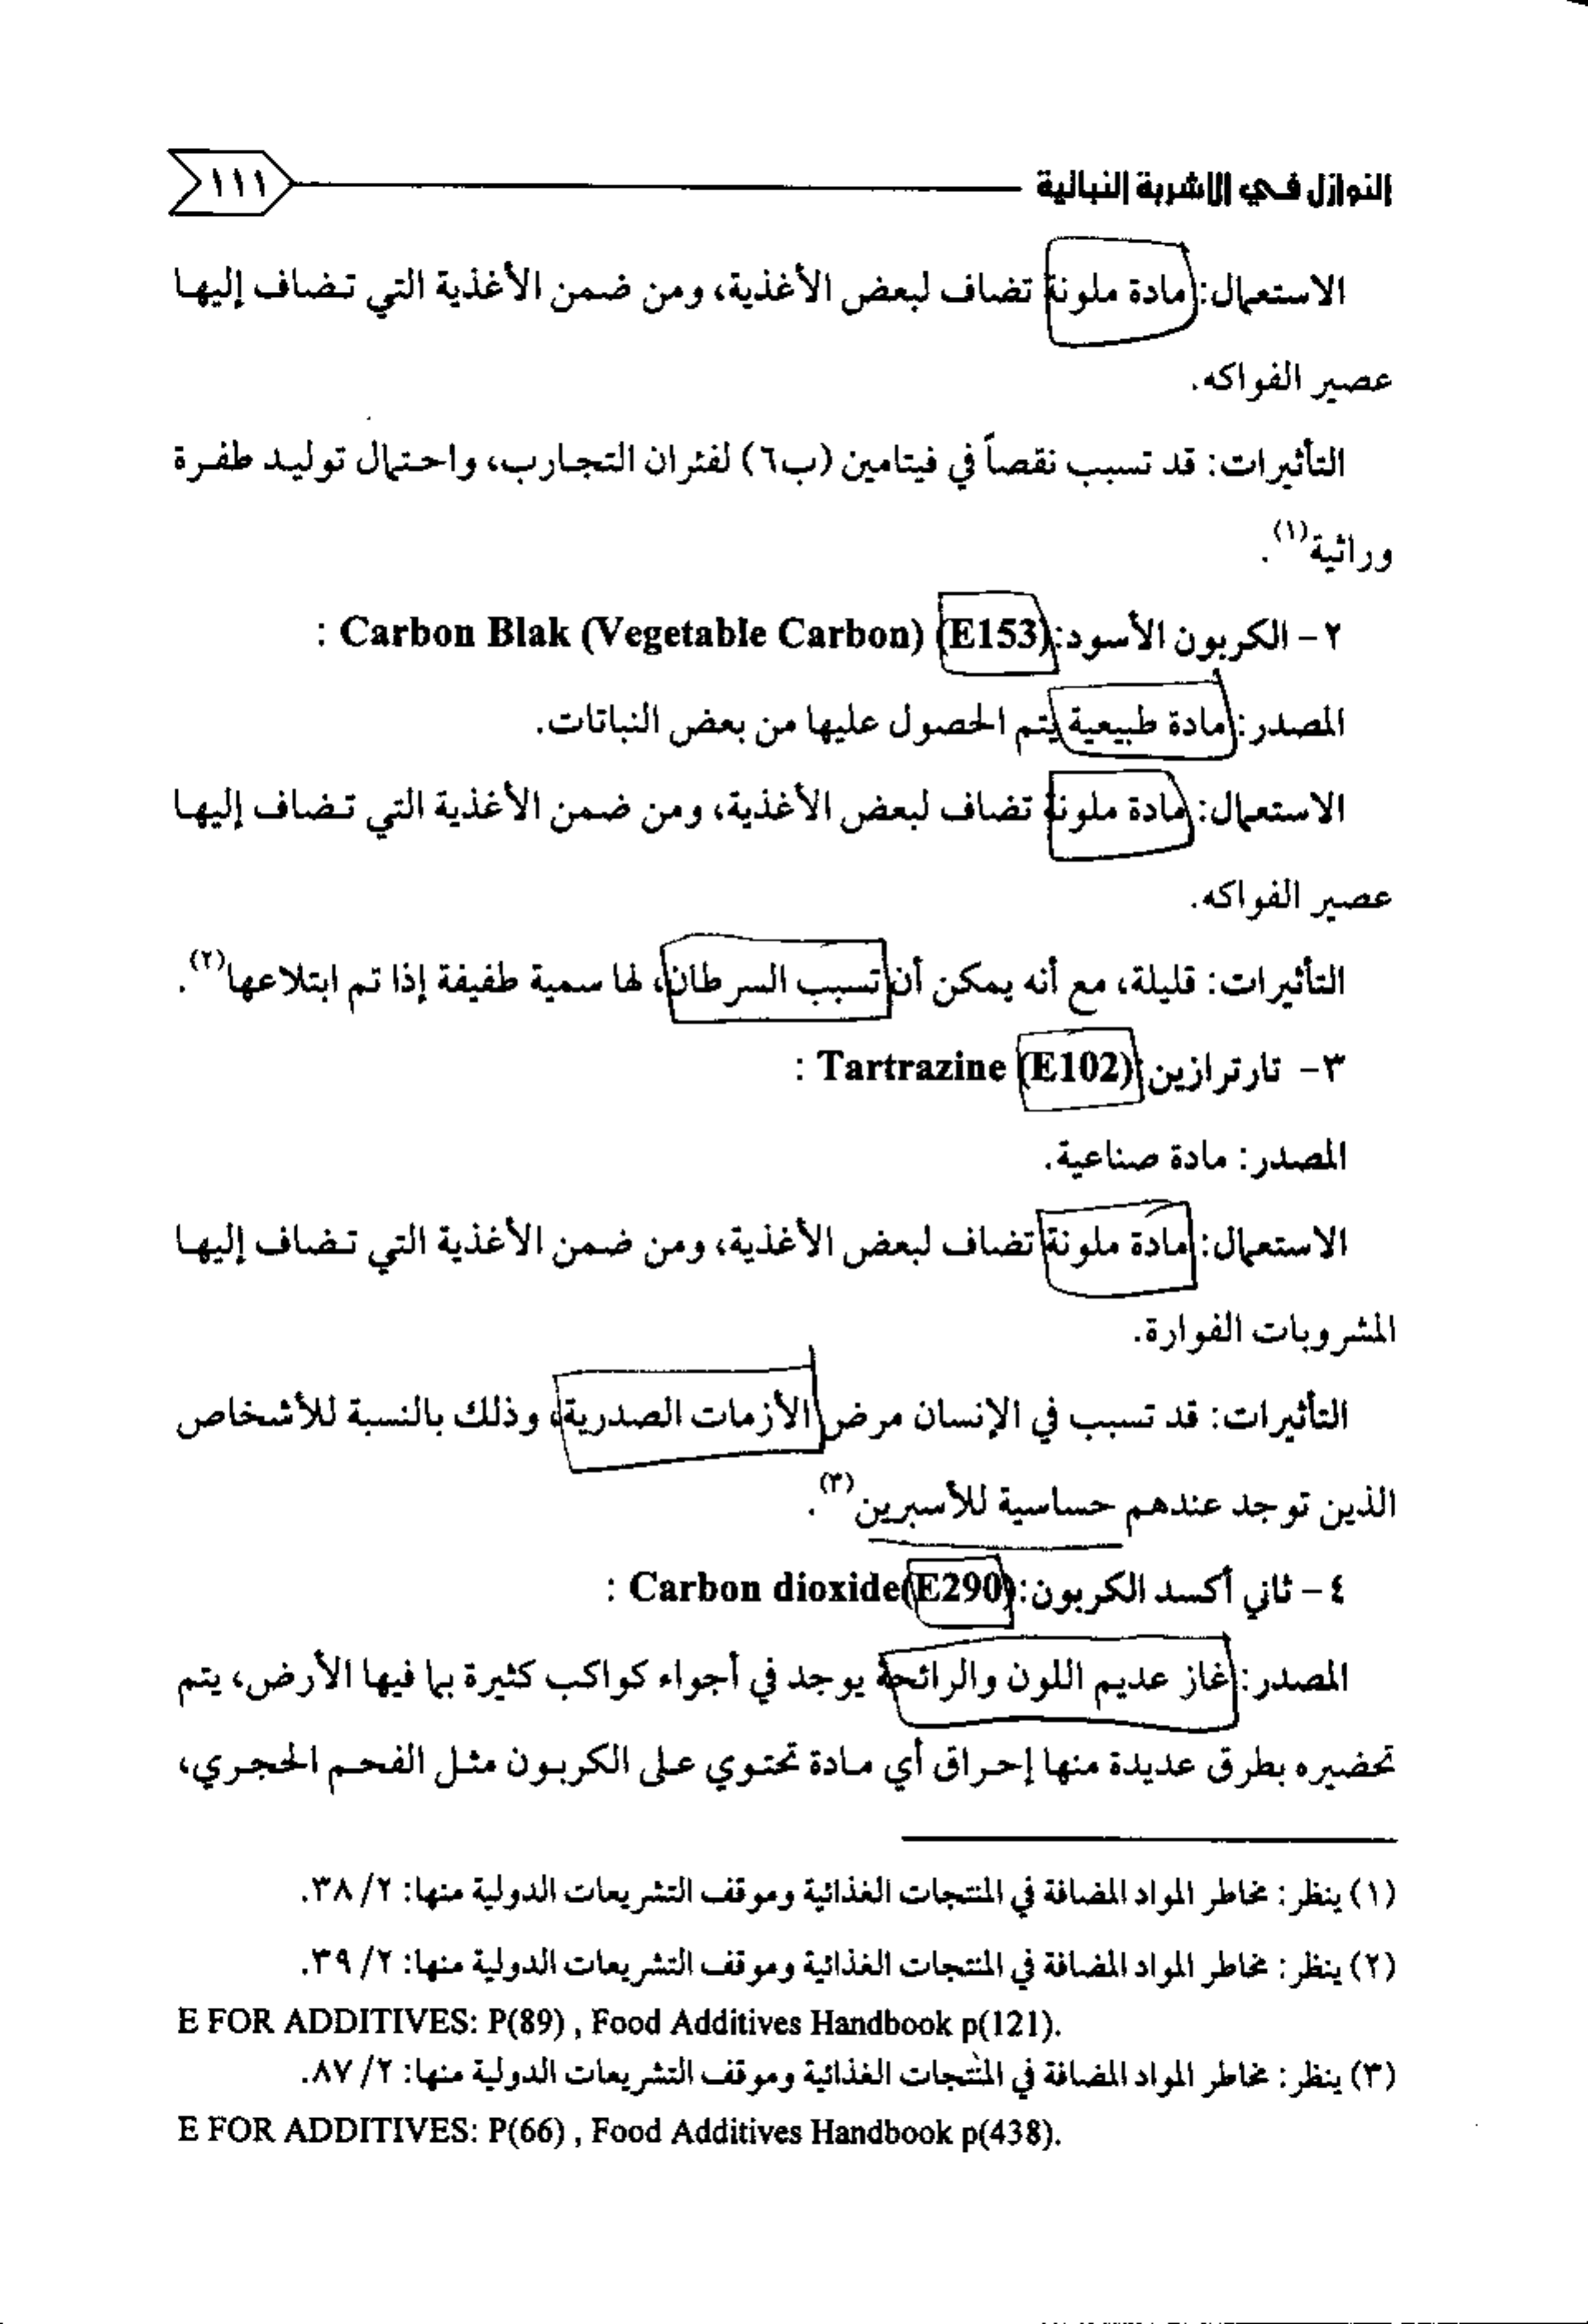 النوازل في الاشربة النباتية
١١١
الاستعمال: مادة ملونة تضاف لبعض الأغذية، ومن ضمن الأغذية التي تضاف إليها
عصير الفواكه.
التأثيرات: قد تسبب نقصاً في فيتامين (ب٦) لفئران التجارب، واحتمال توليد طفرة
وراثية(١).
٢- الكربون الأسود: Carbon Blak (Vegetable Carbon) (E153) :
المصدر: مادة طبيعية يتم الحصول عليها من بعض النباتات.
الاستعمال: مادة ملونة تضاف لبعض الأغذية، ومن ضمن الأغذية التي تضاف إليها
عصير الفواكه.
التأثيرات: قليلة، مع أنه يمكن أن تسبب السرطان، لها سمية طفيفة إذا تم ابتلاعها(٢).
٣- تارترازين: Tartrazine (E102) :
المصدر: مادة صناعية.
الاستعمال: مادة ملونة تضاف لبعض الأغذية، ومن ضمن الأغذية التي تضاف إليها
المشروبات الفوارة.
التأثيرات: قد تسبب في الإنسان مرض الأزمات الصدرية، وذلك بالنسبة للأشخاص
الذين توجد عندهم حساسية للأسبرين(٣).
٤- ثاني أكسد الكربون: Carbon dioxide(E290) :
المصدر: غاز عديم اللون والرائحة يوجد في أجواء كواكب كثيرة بما فيها الأرض، يتم
تحضيره بطرق عديدة منها إحراق أي مادة تحتوي على الكربون مثل الفحم الحجري،
(١) ينظر: مخاطر المواد المضافة في المنتجات الغذائية وموقف التشريعات الدولية منها: ٢/ ٣٨.
(٢) ينظر: مخاطر المواد المضافة في المنتجات الغذائية وموقف التشريعات الدولية منها: ٢/ ٣٩.
E FOR ADDITIVES: P(89) , Food Additives Handbook p(121).
(٣) ينظر: مخاطر المواد المضافة في المنتجات الغذائية وموقف التشريعات الدولية منها: ٢/ ٨٧.
E FOR ADDITIVES: P(66) , Food Additives Handbook p(438).